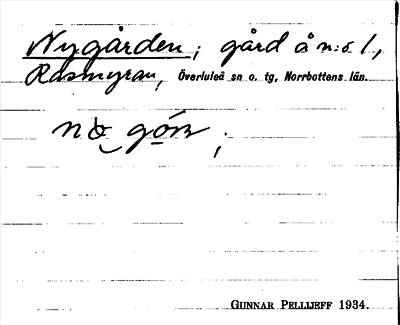 Nygården; gård å n:o 1,
Rasmyran, Överluleå sn o. tg, Norrbottens län.
GUNNAR PELLIJEFF 1934.